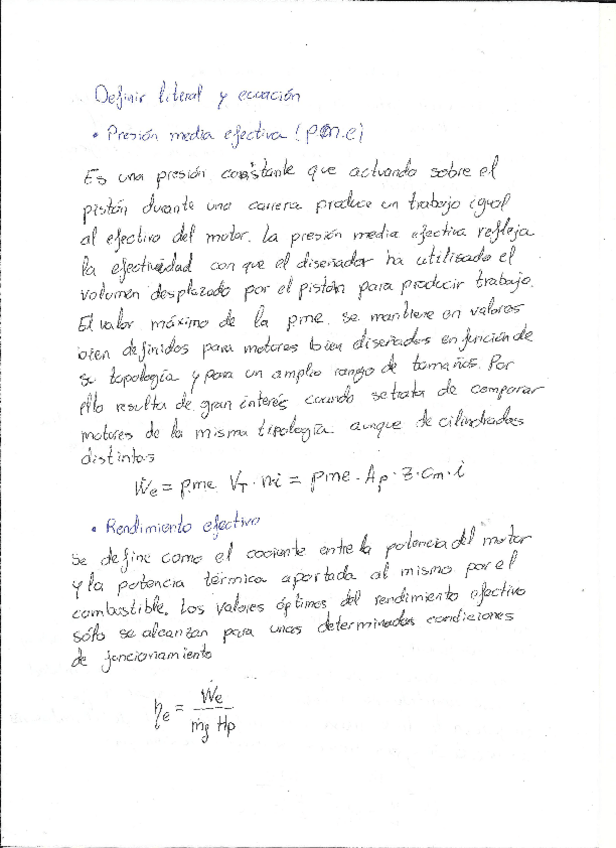 Definir literal y ecuación
• Presión media efectiva (p.m.e)
Es una presión constante que actuando sobre el
pistón durante una carrera produce un trabajo igual
al efectivo del motor. La presión media efectiva refleja
la efectividad con que el diseñador ha utilizado el
volumen desplazado por el pistón para producir trabajo.
El valor máximo de la pme. se mantiene en valores
bien definidos para motores bien diseñados en función de
su topología y para un amplio rango de tamaños. Por
ello resulta de gran interés cuando se trata de comparar
motores de la misma tipología aunque de cilindradas
distintas
Ẇe = pme V_T · n·i = pme · A_p · z · c_m · i
• Rendimiento efectivo
Se define como el cociente entre la potencia del motor
y la potencia térmica aportada al mismo por el
combustible. Los valores óptimos del rendimiento efectivo
sólo se alcanzan para unas determinadas condiciones
de funcionamiento
η_e = Ẇe / ṁ_f Hp